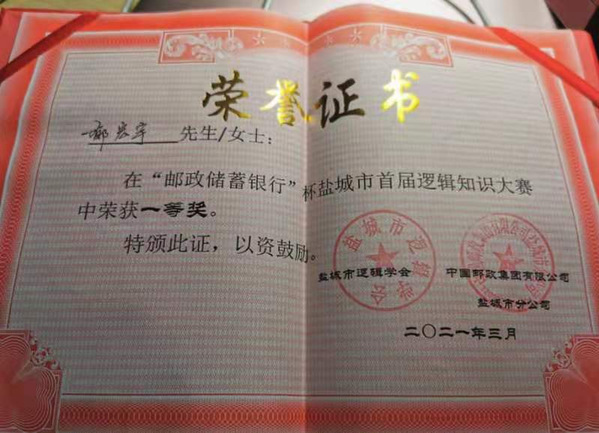 荣誉证书
郝宏宇 先生/女士：
在“邮政储蓄银行”杯盐城市首届逻辑知识大赛
中荣获一等奖。
特颁此证，以资鼓励。
盐城市逻辑学会
中国邮政集团有限公司
盐城市分公司
二〇二一年三月
盐城市逻辑学会